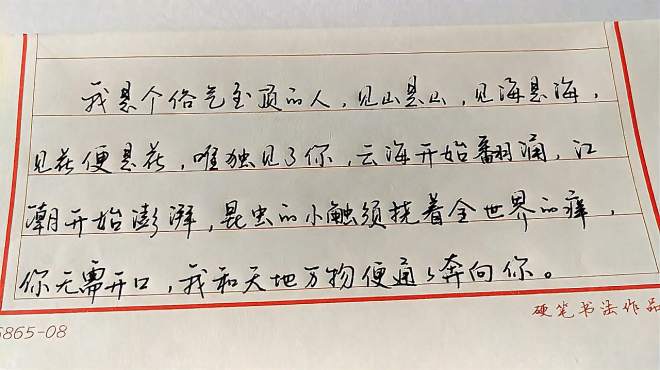 我是个俗气至顶的人，见山是山，见海是海，
见花便是花，唯独见了你，云海开始翻涌，江
潮开始澎湃，昆虫的小触须挠着全世界的痒，
你无需开口，我和天地万物便通通奔向你。
硬笔书法作品
6865-08